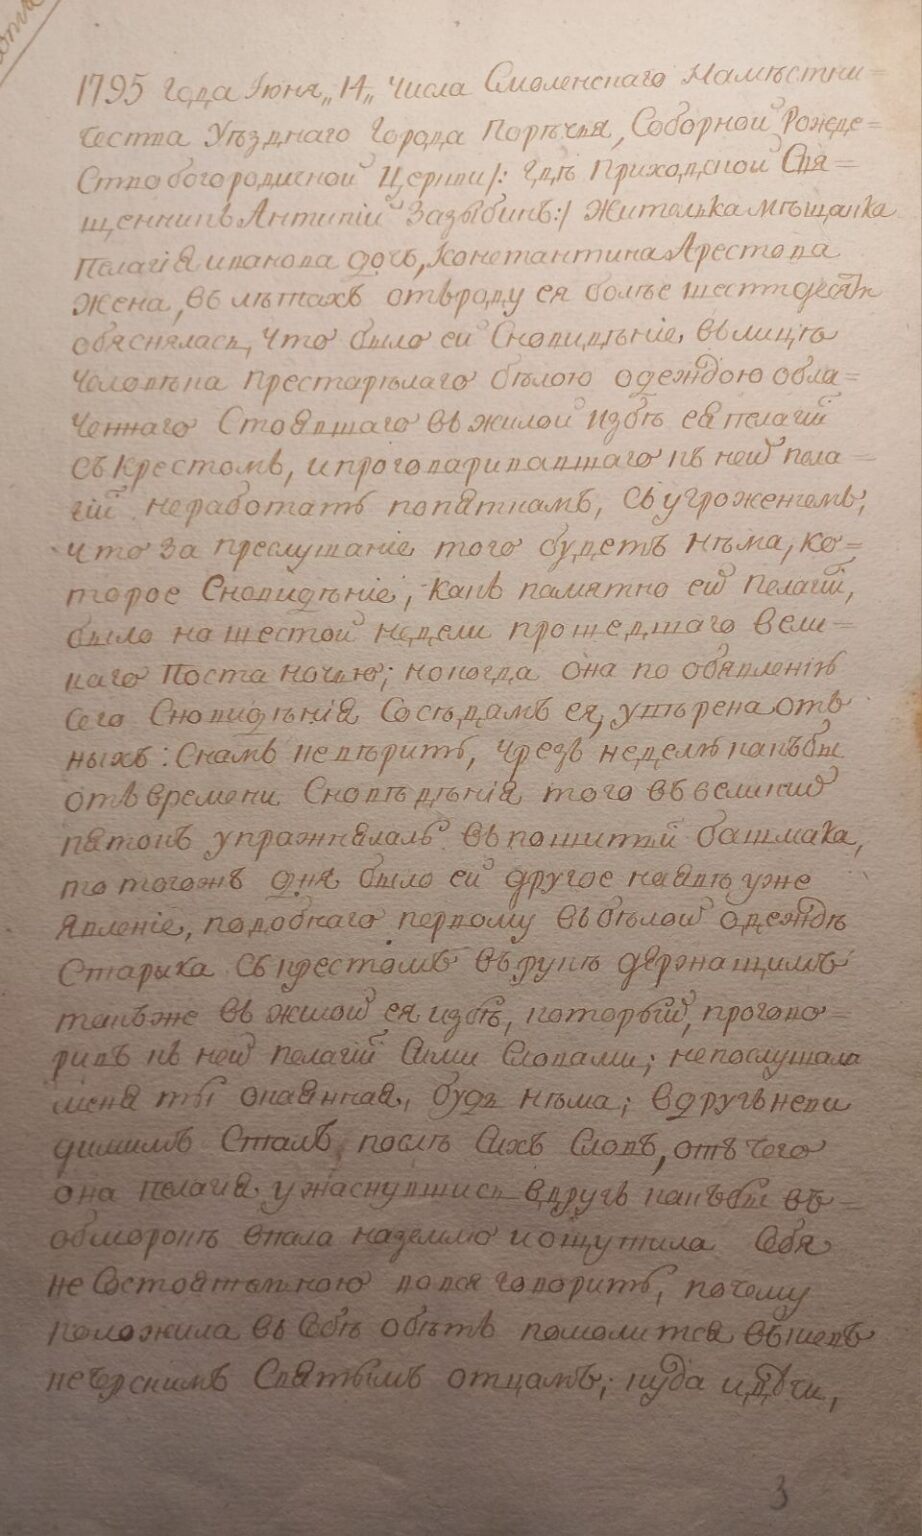 1795 Года Іюня „14„ числа Смоленскаго Намѣстни=
чества Уѣзднаго Города Порѣчья, Соборной Рожде=
Ствобогородичной Церкви /: гдѣ Приходской Свя=
щенникъ Антипій Зазыбинъ :/ Жителька мѣщанка
Пелагія иванова дочь, Константина Арестова
жена, въ лѣтахъ отъ роду ея болѣе шестидесятъ
обяснялась, что было ей Сновидѣніе, въ лицѣ
человѣка престарѣлаго бѣлою одеждою обла=
ченнаго Стоявшаго въ жилой избѣ ея пелагіи
съ крестомъ, и проговаривавшаго къ ней пела=
гіи неработать попяткамъ, Съ угроженіемъ,
что за преслушаніе того будетъ нѣма, ко=
торое Сновидѣніе, какъ памятно ей Пелагіи,
было на шестой недели прошедшаго вели=
каго Поста ночью; но когда она по объявленіи
сего Сновидѣнія Сосѣдамъ ея, увѣрена отъ
ныхъ: Снамъ невѣрить, чрезъ неделю какъбы
отъ времени Сновѣдѣнія того въ великій
пятокъ упражнялась въ пошитіи башмака,
то тогожъ дня было ей другое наявѣ уже
явленіе, подобнаго первому въ бѣлой одеждѣ
Старыка съ крестомъ въ рукѣ держащимъ
такъже въ жилой ея избѣ, который, прогово=
ривъ къ ней пелагіи Сими Словами; непослушала
меня ты окаянная, будь нѣма; вдругъ неви
димимъ Сталъ, послѣ Сихъ Словъ, отъ чего
она пелагія ужаснувшись вдругъ какъбы въ=
обморокъ впала на землю и ощутила Себя
не Состоятельною вовся говорить, почему
положила въ Себѣ обѣтъ помолится въ кіевѣ
печерскимъ Святымъ отцамъ; куда идучи,
3